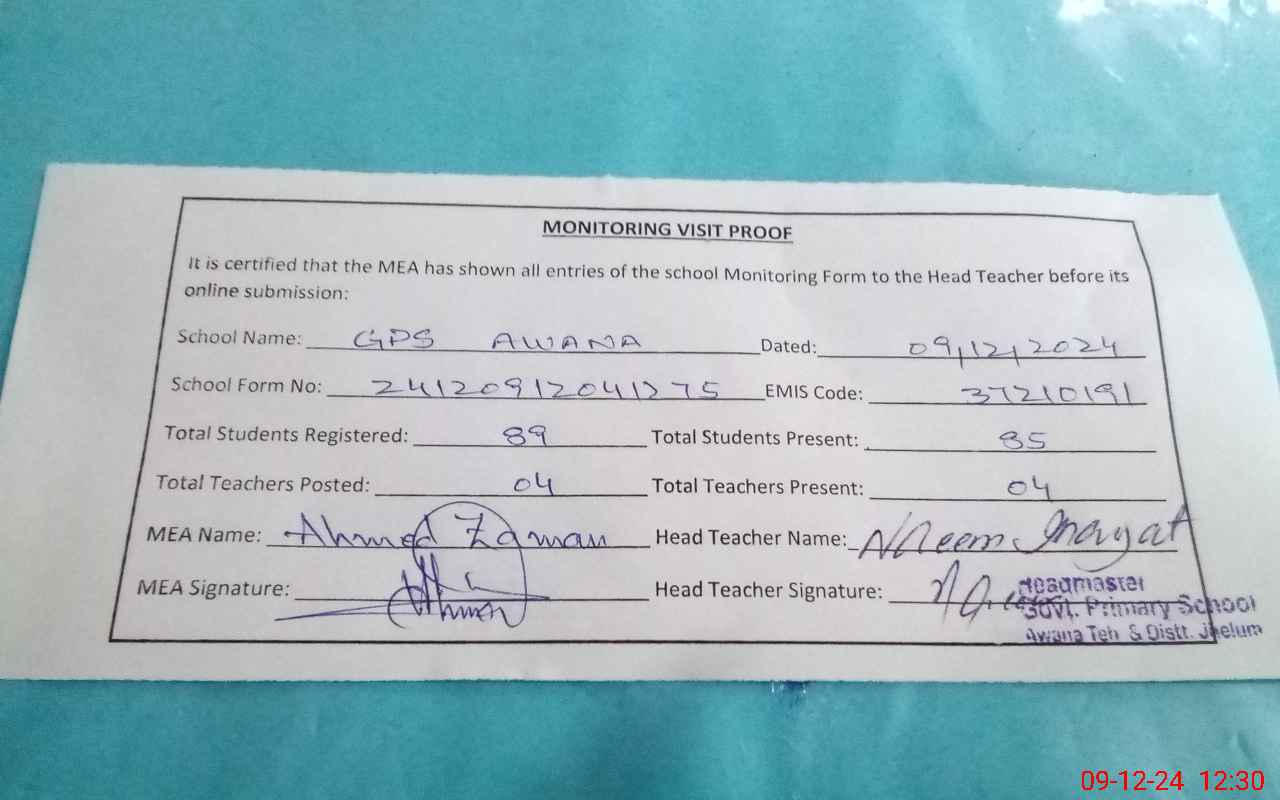 MONITORING VISIT PROOF
It is certified that the MEA has shown all entries of the school Monitoring Form to the Head Teacher before its
online submission:
School Name: GPS AWANA Dated: 09,12,2024
School Form No: 24120912041275 EMIS Code: 37210191
Total Students Registered: 89 Total Students Present: 85
Total Teachers Posted: 04 Total Teachers Present: 04
MEA Name: Ahmed Zaman Head Teacher Name: Naeem Inayat
MEA Signature: Head Teacher Signature:
Headmaster
Govt. Primary School
Awana Teh & Distt. Jhelum
09-12-24 12:30